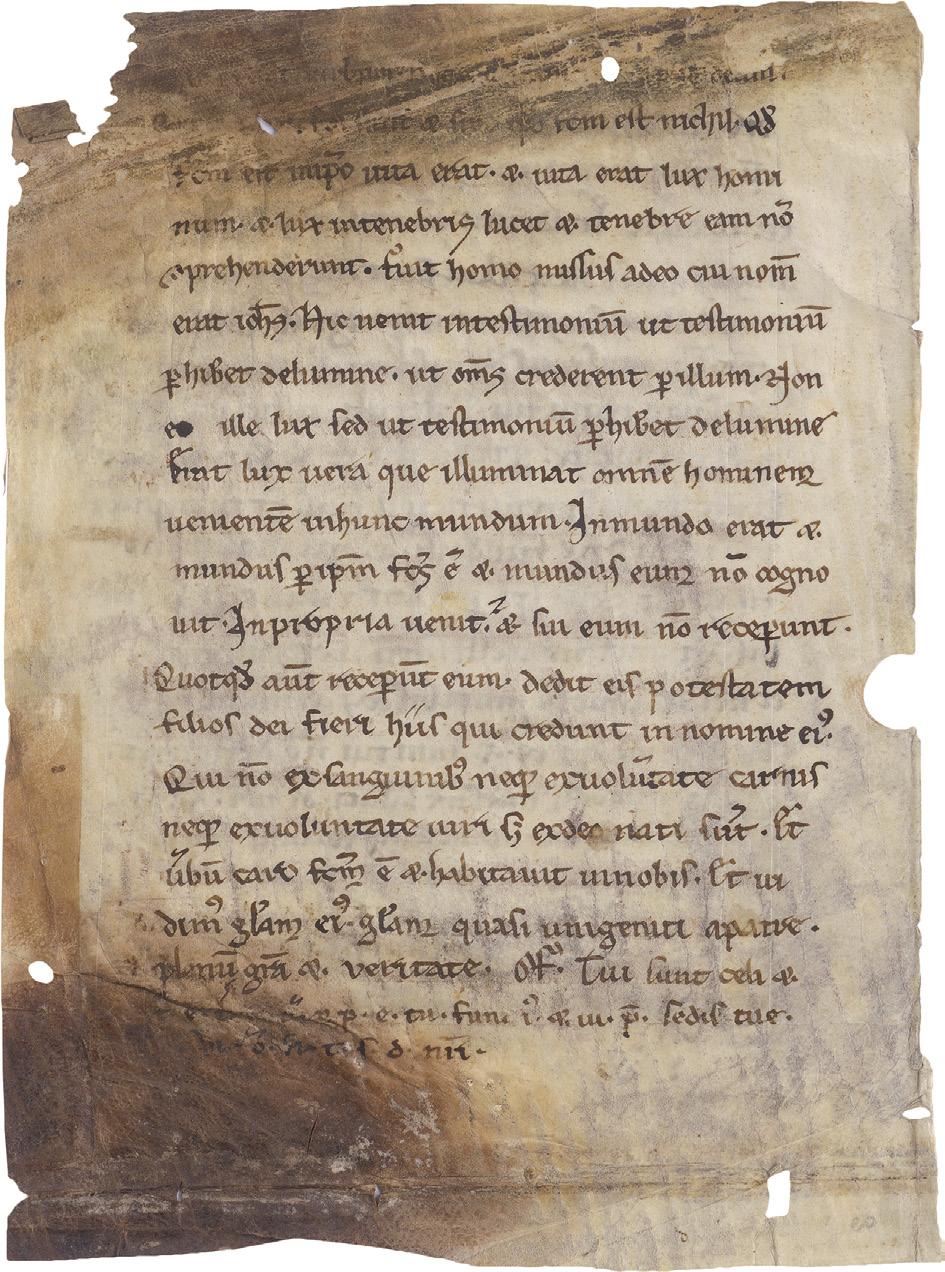 fcm est nichil. Qđ
fcm est in ip̄o uita erat. & uita erat lux homi
num. & lux intenebris lucet & tenebre eam nō
ꝯprehenderunt. fuit homo missus adeo cui nom̄
erat ioh̄s. Hic uenit intestimoniū ut testimoniū
ꝑhibet delumine. ut om̄s crederent ꝑ illum. Non
ille lux sed ut testimoniū ꝑhibet delumine
Erat lux uera que illuminat omnē hominem
uenientē inhunc mundum. Inmundo erat &
mundus ꝑ ip̄m fcs̄ ē & mundus eum nō cogno
uit. Inpropria uenit. & sui eum nō receperunt.
Quotqđ aūt receperūt eum. dedit eis potestatem
filios dei fieri hiis qui credunt in nomine ei᾽.
Qui nō exsanguinib᾽ neqꝫ exuolūtate carnis
neqꝫ exuoluntate uiri sꝫ exdeo nati sūt. Et
ūbū caro fcm̄ ē & habitauit innobis. Et ui
dim᾽ gl̄am ei᾽ gl̄am quasi unigeniti apatre.
plenū grā & veritate. Off. Tui sunt celi &
p. e. tu. fun. i᾽. & iu. p̄. sedis tue.